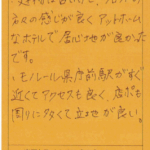 名々の感じが良く アットホーム
なホテルで 居心地が良かった
です。
・モノレール県庁前駅がすぐ
近くてアクセスも良く、店も
周りに多くて立地が良い。